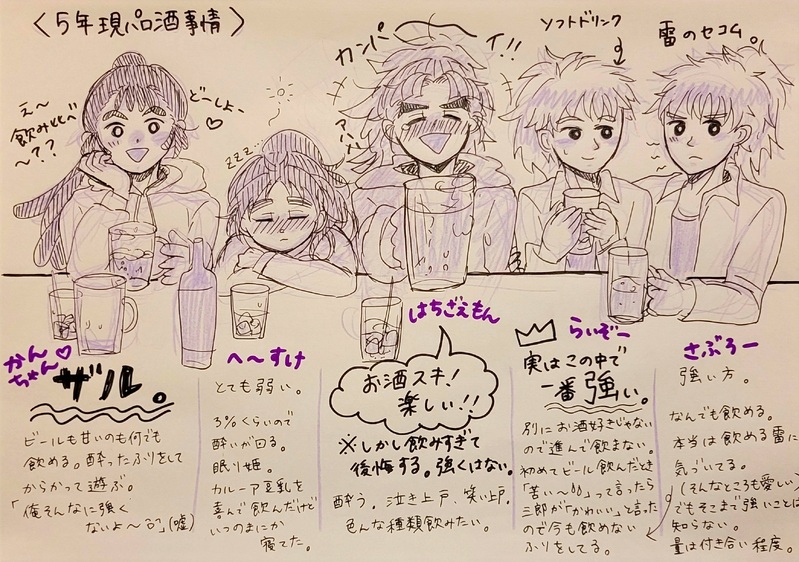 〈5年現パロ酒事情〉
え〜
飲み比べ
〜??
どーしよー
♡
zzz...
カンパ
イ!!
ソフトドリンク
雷のセコム。
かん♡
ちゃん
ザル。
ビールも甘いのも何でも
飲める。酔ったふりをして
からかって遊ぶ。
「俺そんなに強く
ないよ〜」(嘘)
へ〜すけ
とても弱い。
3%くらいので
酔いが回る。
眠り姫。
カルーア豆乳を
喜んで飲んだけど
いつのまにか
寝てた。
はちざえもん
お酒スキ!
楽しい!!
※しかし飲みすぎて
後悔する。強くはない。
酔う。泣き上戸、笑い上戸。
色んな種類飲みたい。
らいぞー
実はこの中で
一番強い。
別にお酒好きじゃない
ので進んで飲まない。
初めてビール飲んだとき
「苦い〜」って言ったら
三郎が「かわいい」と言った
ので今も飲めない
ふりをしてる。
さぶろー
強い方。
なんでも飲める。
本当は飲める雷に
気づいてる。
(そんなところも愛しい)
でもそこまで強いことは
知らない。
量は付き合い程度。